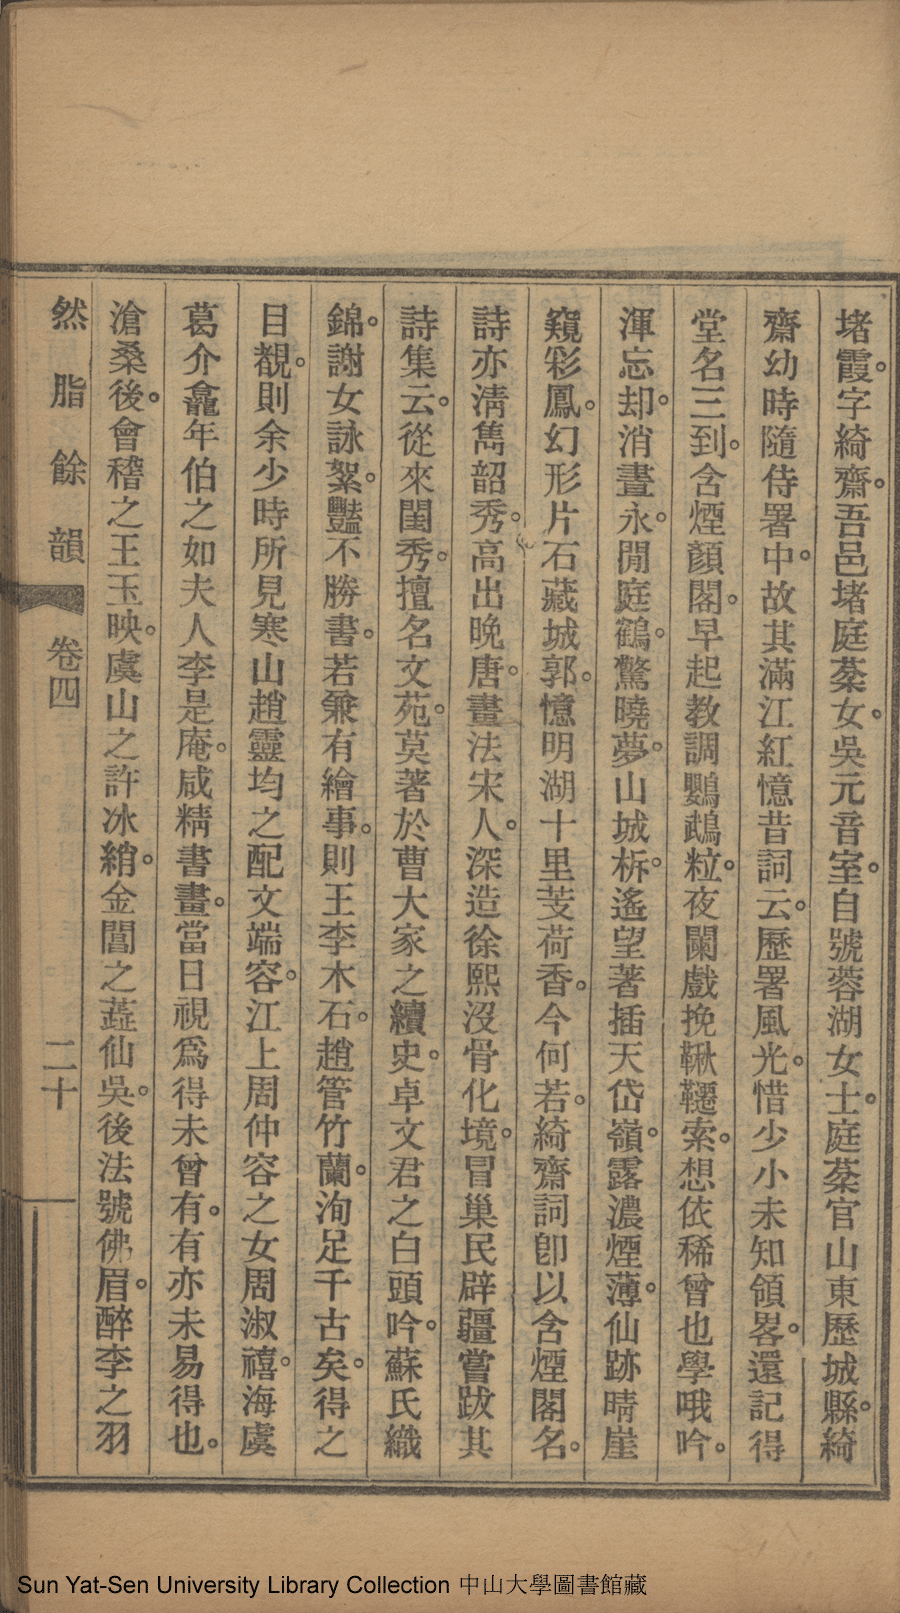 堵霞。字綺齋。吾邑堵庭棻女。吳元音室。自號蓉湖女士。庭棻官山東歷城縣。綺
齋幼時隨侍署中。故其滿江紅憶昔詞云。歷署風光。惜少小未知領畧。還記得
堂名三到。含煙顏閣。早起教調鸚鵡粒。夜闌戲挽鞦韆索。想依稀曾也學哦吟。
渾忘却。消晝永。閒庭鶴。驚曉夢。山城柝。遙望著插天岱嶺。露濃煙薄。仙跡晴崖
窺彩鳳。幻形片石藏城郭。憶明湖十里芰荷香。今何若。綺齋詞卽以含煙閣名。
詩亦淸雋韶秀。高出晚唐。畫法宋人。深造徐熙沒骨化境。冒巢民辟疆嘗跋其
詩集云。從來閨秀。擅名文苑。莫著於曹大家之續史。卓文君之白頭吟。蘇氏織
錦。謝女詠絮。豔不勝書。若兼有繪事。則王李木石。趙管竹蘭。洵足千古矣。得之
目覩。則余少時所見寒山趙靈均之配文端容。江上周仲容之女周淑禧。海虞
葛介龕年伯之如夫人李是庵。咸精書畫。當日視爲得未曾有。有亦未易得也。
滄桑後。會稽之王玉映。虞山之許冰綃。金閶之蕋仙吳。後法號佛眉。醉李之羽
然脂餘韻 卷四 二十
Sun Yat-Sen University Library Collection 中山大學圖書館藏